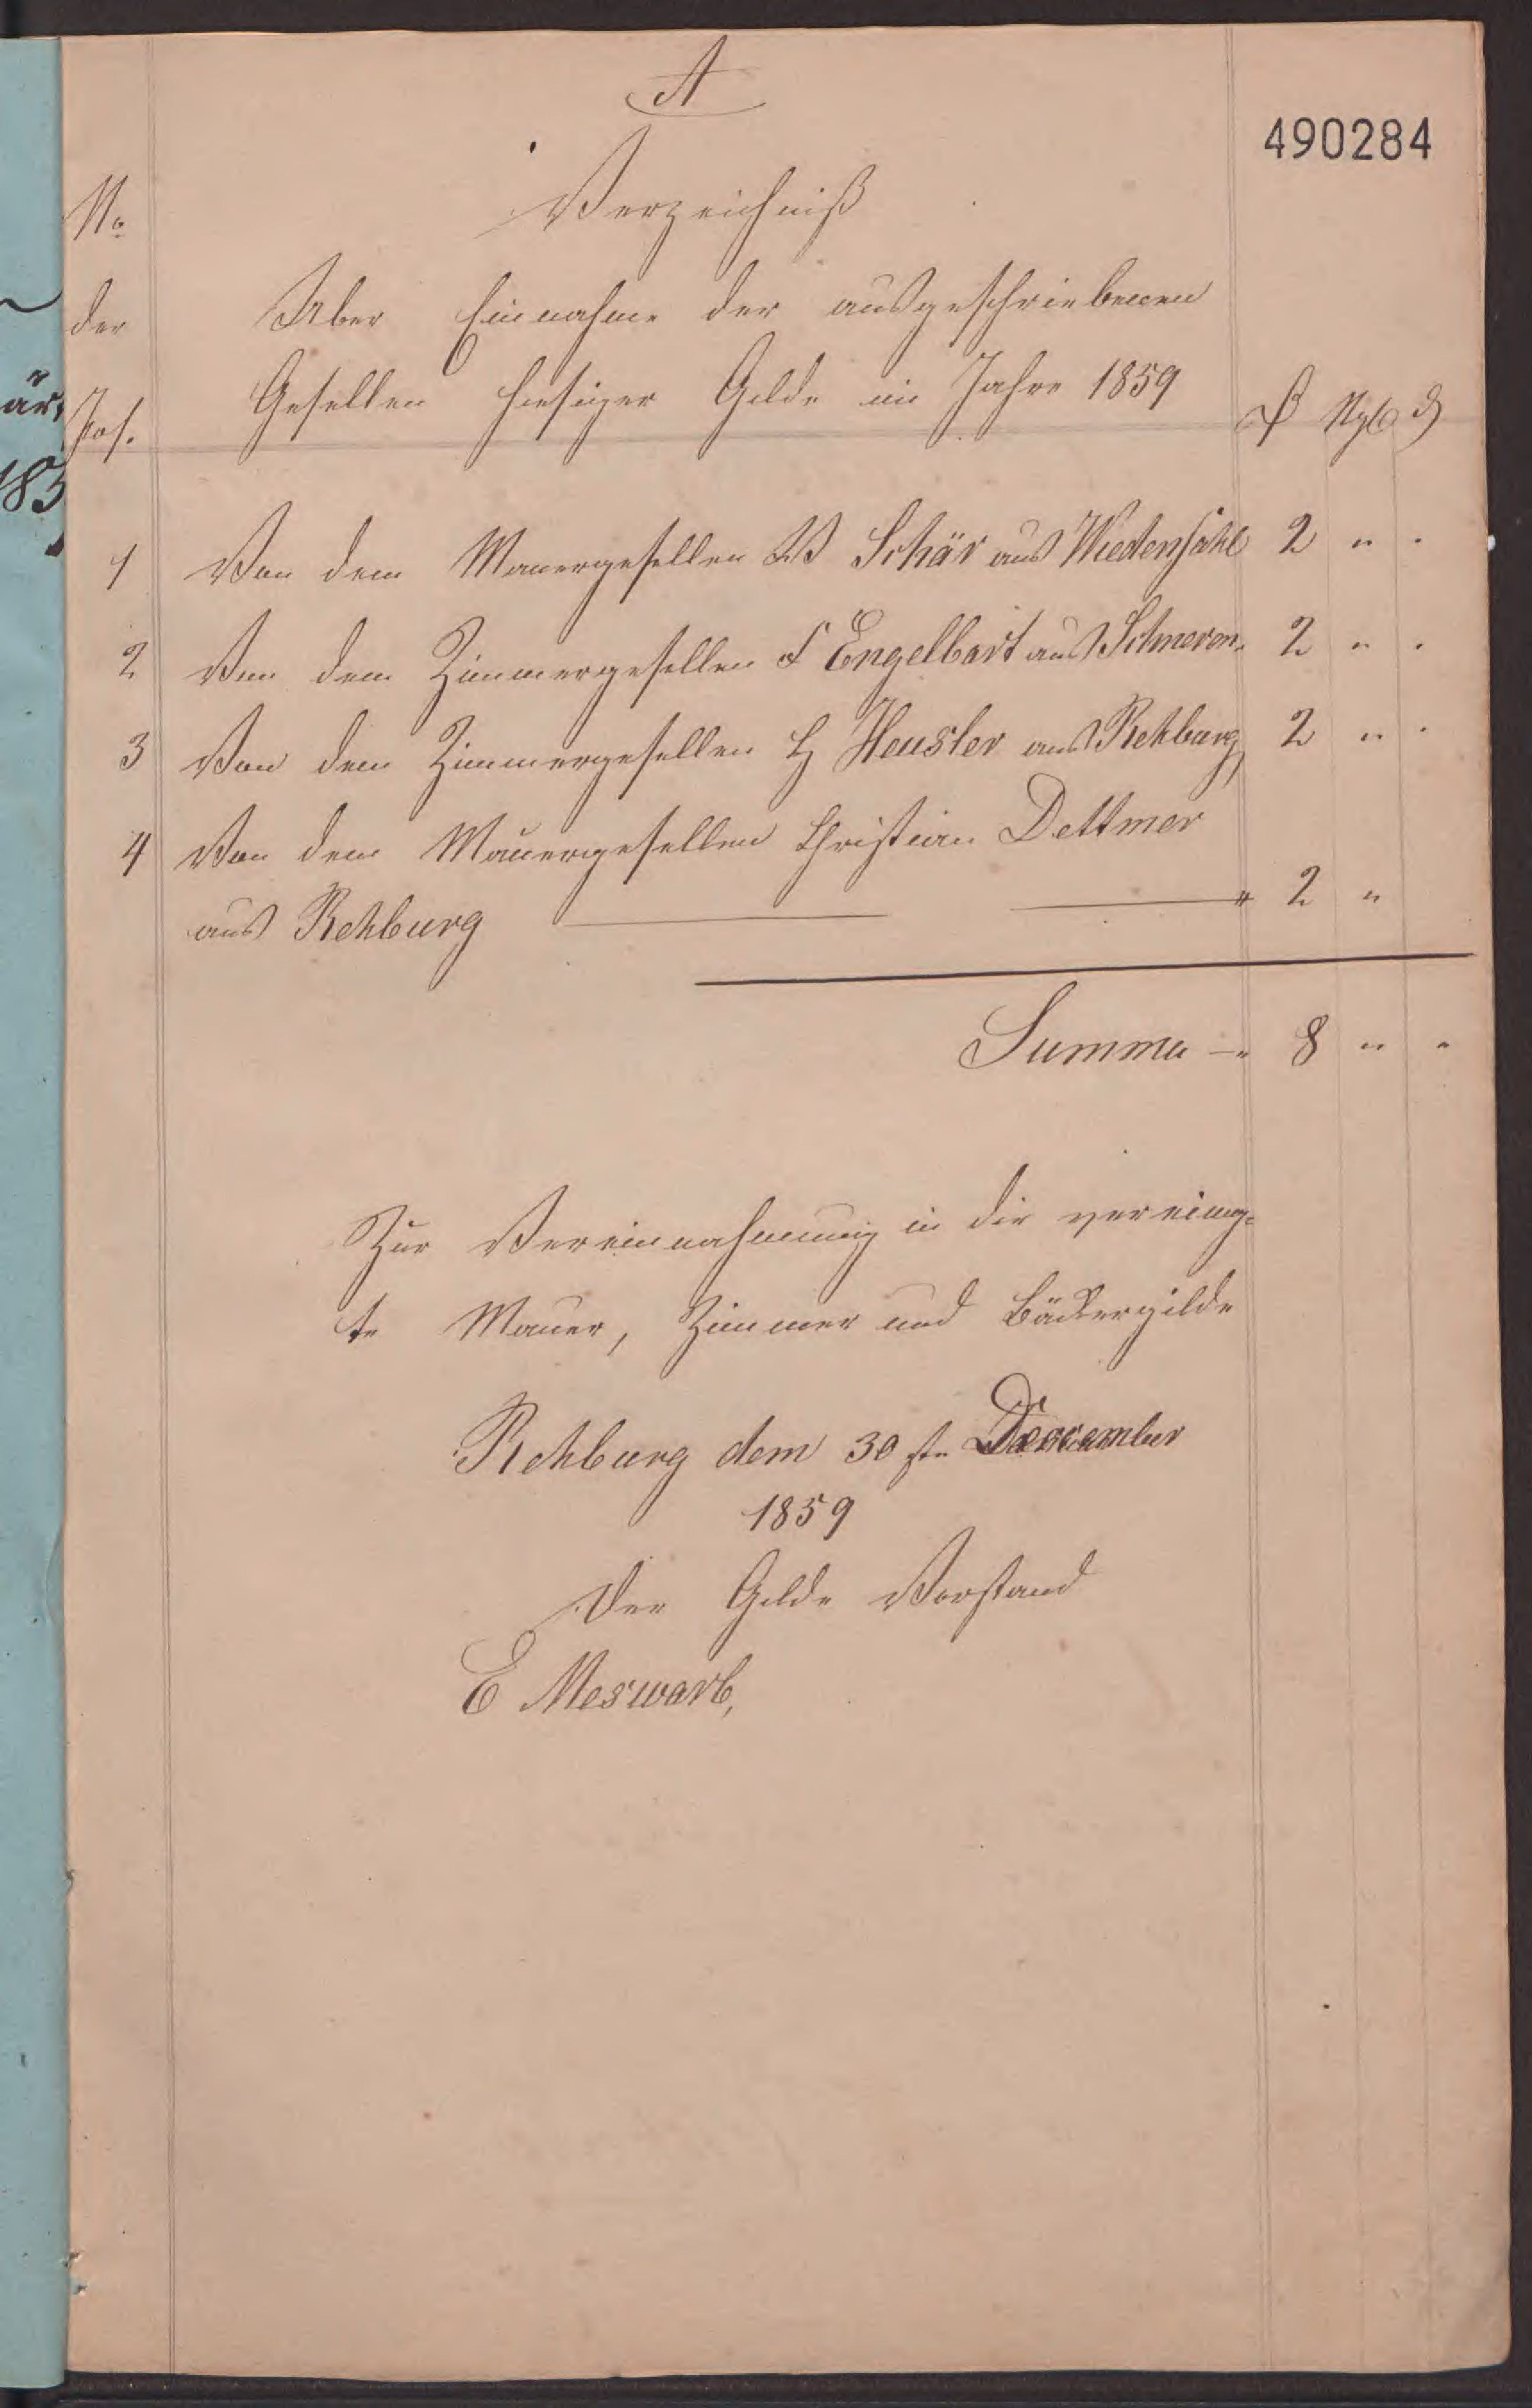 A
490284
No
Verzeichniß
der
Über Einnahme der ausgeschriebenen
Pos.
Gesellen hiesiger Gilde im Jahre 1859
₰
1 Von dem Mauergesellen W Schär aus Wiedensahl 2 " "
2 Von dem Zimmergesellen F Engelbart aus Schneren 2 " "
3 Von dem Zimmergesellen H Heusler aus Rehburg 2 " "
4 Von dem Mauergesellen Christian Dettmer
aus Rehburg — — " 2 "
Summa — 8 " "
Zur Vereinnahmung in die vereinig-
te Mauer, Zimmer und Bäckergilde
Rehburg dem 30ste December
1859
Der Gilde Vorstand
E Meswarb,
är,
185